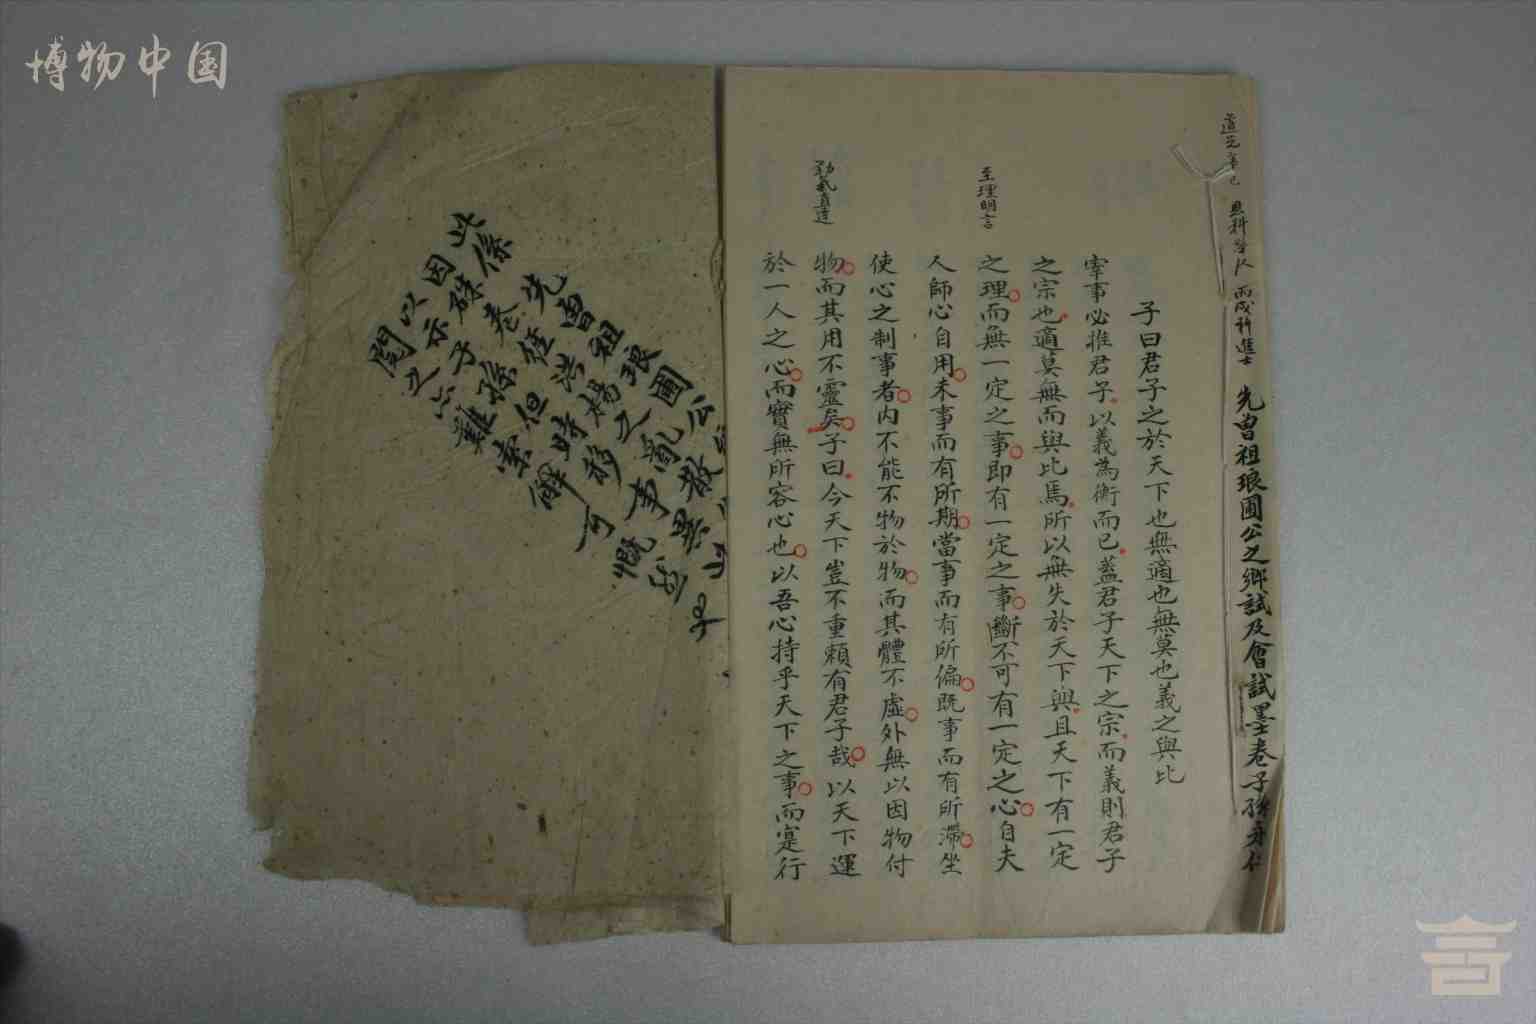 博物中国
道光辛巳 恩科舉人 丙戌科進士 先曾祖琅圃公之鄉試及會試墨卷子孫
子曰君子之於天下也無適也無莫也義之與比
宰事必推君子以義為衡而已蓋君子天下之宗而義則君子
之宗也適莫無而與比焉所以無失於天下與且天下有一定
至理明言
之理而無一定之事即有一定之事斷不可有一定之心自夫
人師心自用未事而有所期當事而有所偏既事而有所滯坐
使心之制事者內不能不物於物而其體不虛外無以因物付
物而其用不靈矣子曰今天下豈不重賴有君子哉以天下運
於一人之心而實無所容心也以吾心持乎天下之事而寔行
先曾祖琅圃公
此係硃卷經洪楊之亂散
因子孫但時移事
以示六難索解可慨
閱之